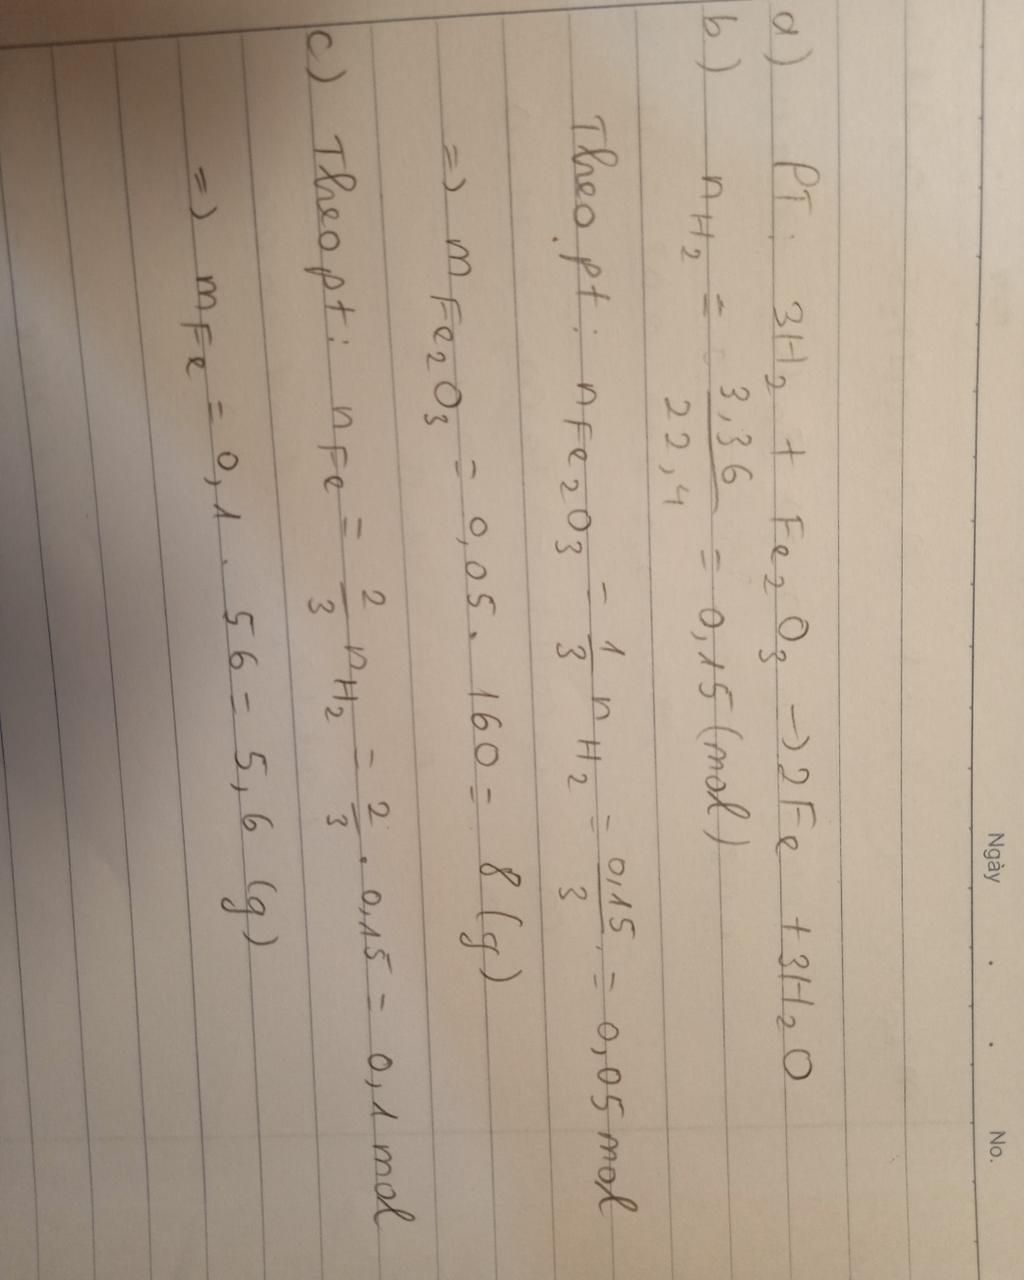 Ngày . . No.
a) PT: 3H₂ + Fe₂O₃ → 2Fe + 3H₂O
b) nH₂ = 3,36/22,4 = 0,15 (mol)
Theo pt: nFe₂O₃ = 1/3 nH₂ = 0,15/3 = 0,05 mol
=) mFe₂O₃ = 0,05 . 160 = 8 (g)
c) Theo pt: nFe = 2/3 nH₂ = 2/3 . 0,15 = 0,1 mol
=) mFe = 0,1 . 56 = 5,6 (g)